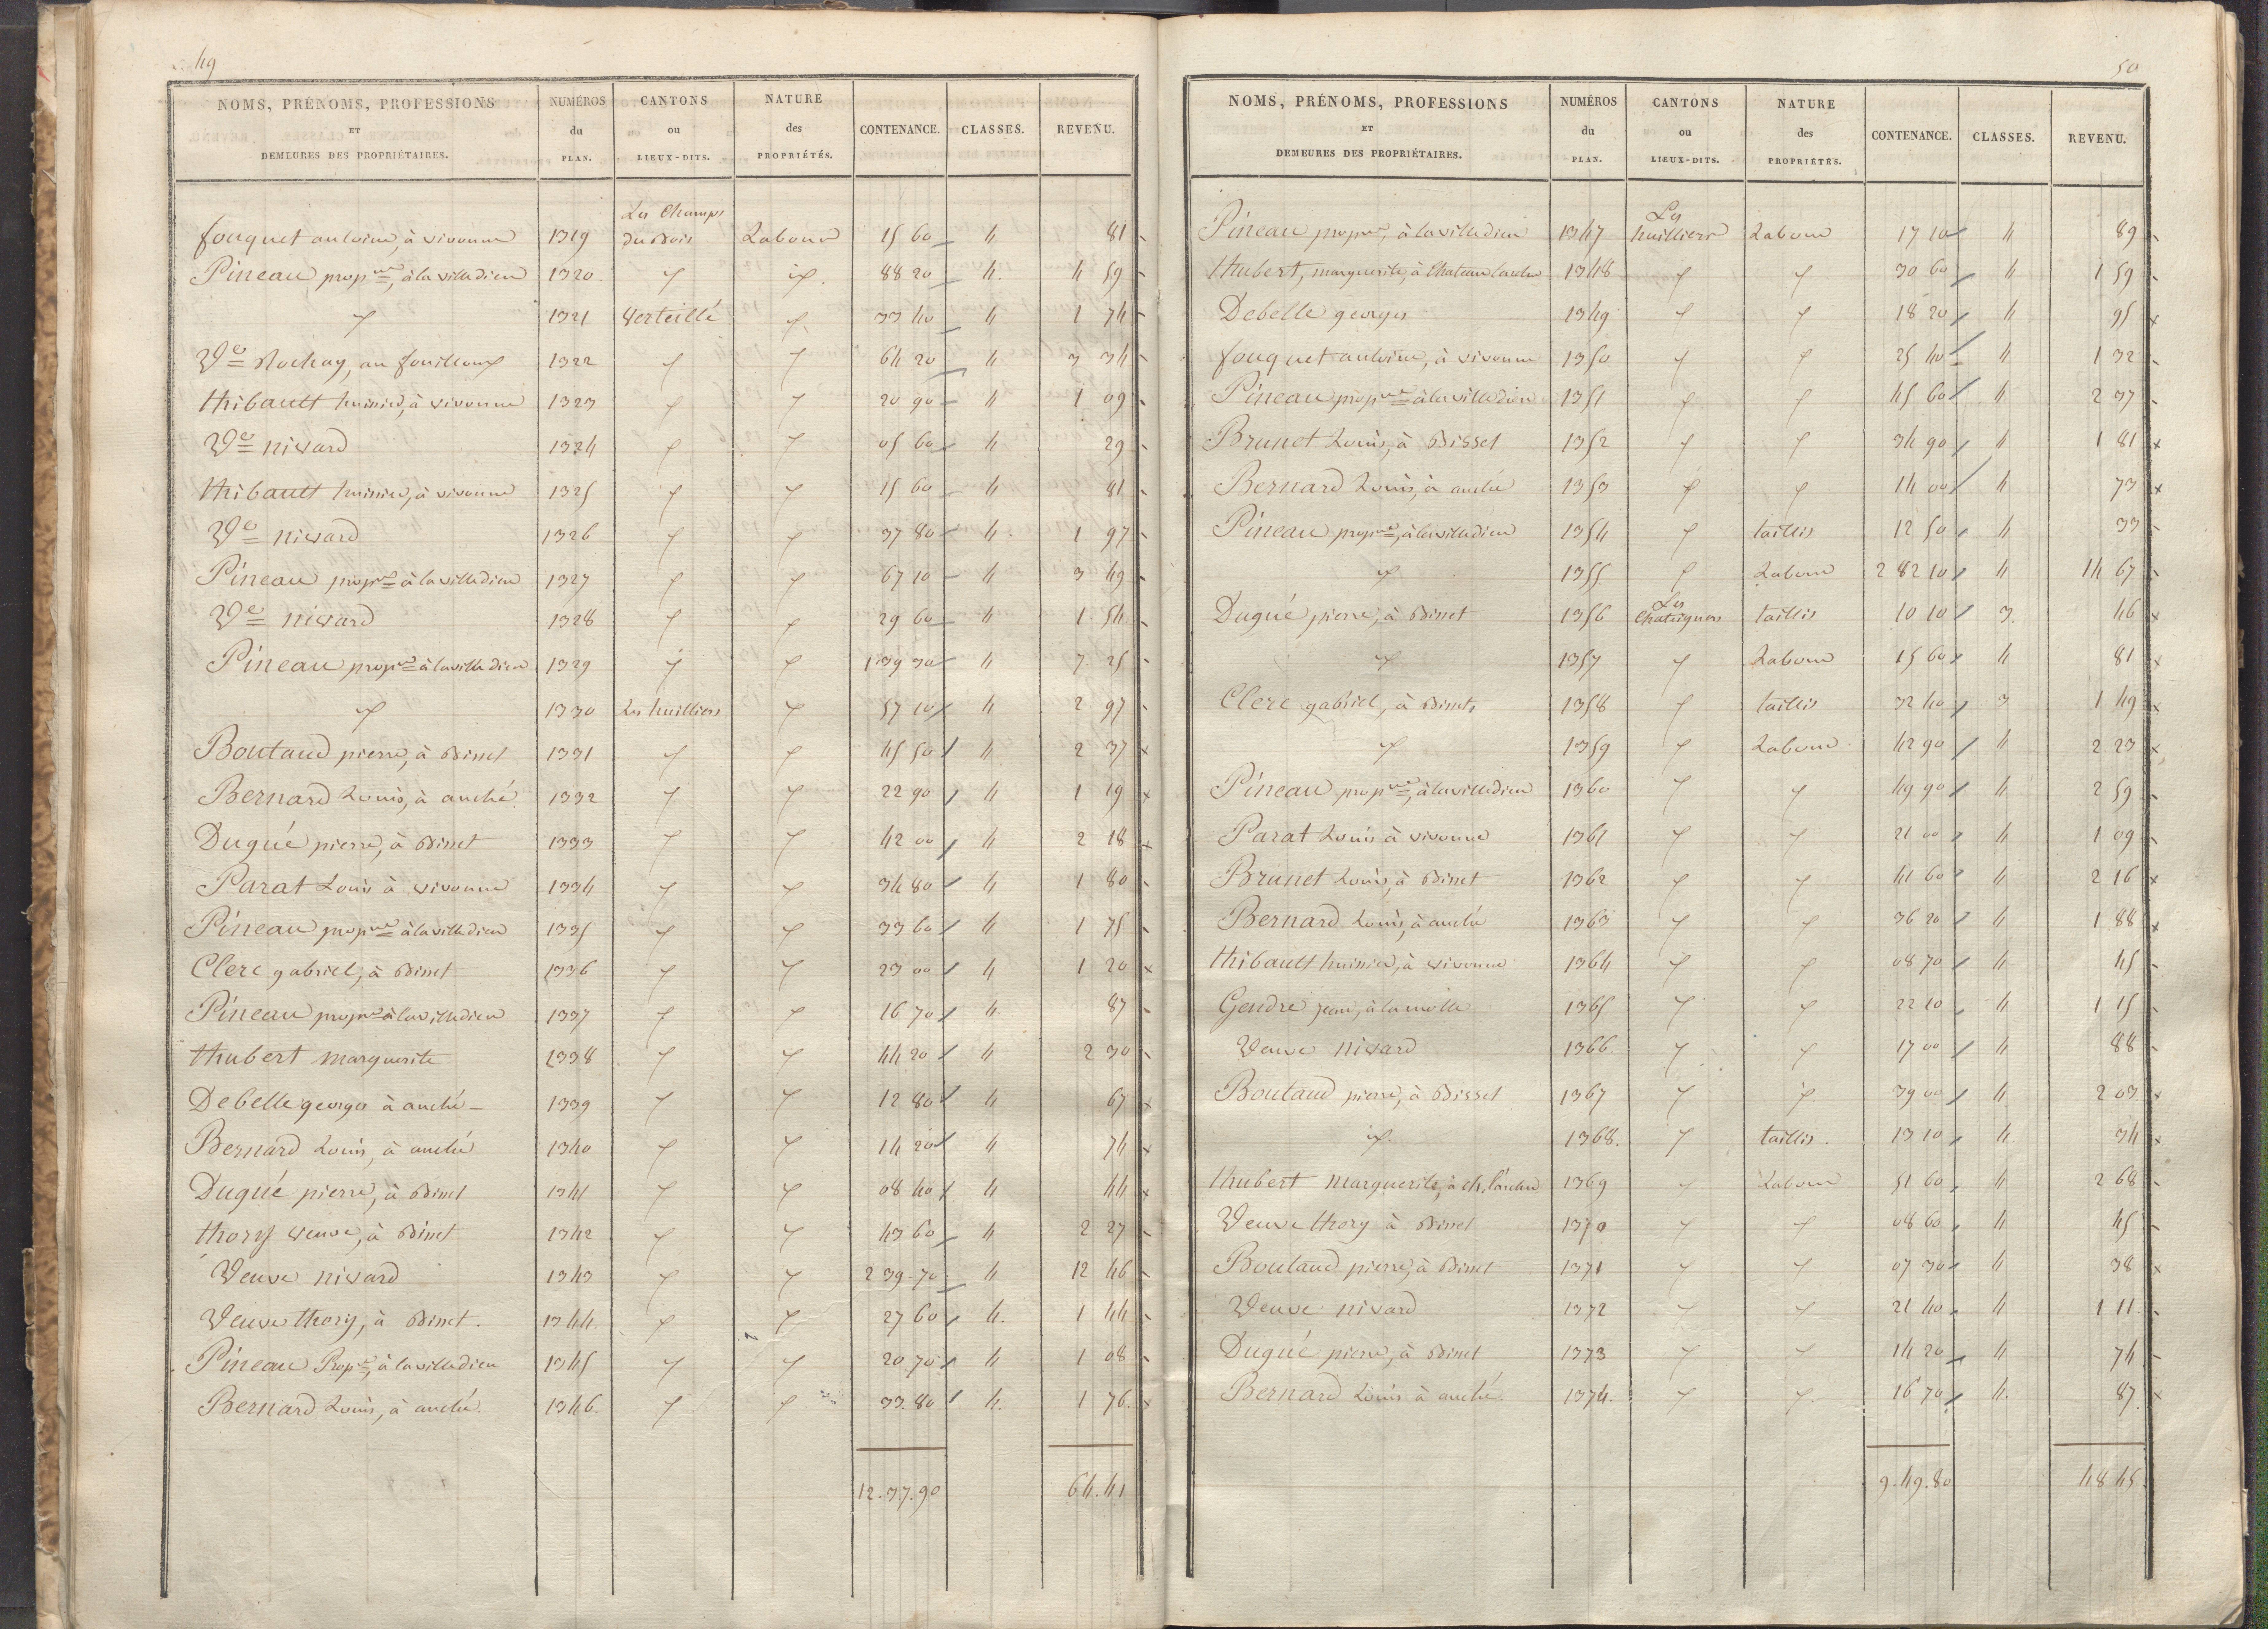 49
NOMS, PRÉNOMS, PROFESSIONS ET DEMEURES DES PROPRIÉTAIRES. NUMÉROS du PLAN. CANTONS ou LIEUX-DITS. NATURE des PROPRIÉTÉS. CONTENANCE. CLASSES. REVENU.
Les Champs
fouquet antoine, à vivonne 1319 Du Bois Labour 15 60 4 81
Pineau propre, à lavilledieu 1320 " id. 88 20 4. 4 59
" 1321 Verteillé " 33 40 4 1 74
Ve Rochay, au fouilloux 1322 " " 64 20 4 3 34
thibault huissier, à vivonne 1323 " " 20 90 4 1 09
Ve nivard 1324 " " 05 60 4 29
thibault huissier, à vivonne 1325 " " 15 60 4 81
Ve nivard 1326 " " 37 80 4. 1 97
Pineau propre à lavilledieu 1327 " " 67 10 4 3 49
Ve nivard 1328 " " 29 60 4 1 54
Pineau propre à lavilledieu 1329 " " 1 39 30 4 7 25
" 1330 Les huilliers " 57 10 4 2 97
Boutaud pierre, à Bisset 1331 " " 45 50 4 2 37
Bernard Louis, à anché 1332 " " 22 90 4 1 19
Dugué pierre, à Bisset 1333 " " 42 00 4 2 18
Parat Louis à vivonne 1334 " " 34 80 4 1 80
Pineau propre à lavilledieu 1335 " " 33 60 4 1 75
Clerc gabriel, à Bisset 1336 " " 23 00 4 1 20
Pineau propre à lavilledieu 1337 " " 16 70 4 87
thubert marguerite 1338 " " 44 20 4 2 30
Debelle georges à anché 1339 " " 12 80 4 67
Bernard Louis, à anché 1340 " " 14 20 4 74
Dugué pierre, à Bisset 1341 " " 08 40 4 44
thory veuve, à Bisset 1342 " " 43 60 4 2 27
Veuve nivard 1343 " " 2 39 70 4 12 46
Veuve thory, à Bisset. 1344. " " 27 60 4. 1 44
Pineau Propre, à lavilledieu 1345 " " 20 70 4 1 08
Bernard Louis, à anché. 1346. " " 33. 80 4. 1 76.
12. 37. 90 64. 41
50
NOMS, PRÉNOMS, PROFESSIONS ET DEMEURES DES PROPRIÉTAIRES. NUMÉROS du PLAN. CANTONS ou LIEUX-DITS. NATURE des PROPRIÉTÉS. CONTENANCE. CLASSES. REVENU.
Les
Pineau propre, à lavilledieu 1347 huilliers Labour 17 10 4 89
thubert, marguerite, à Chateau larcher 1348 " " 30 60 4 1 59
Debelle georges 1349 " " 18 20 4 95
fouquet antoine, à vivonne 1350 " " 25 40 4 1 32
Pineau propre à lavilledieu 1351 " " 45 60 4 2 37
Brunet Louis, à Bisset 1352 " " 34 90 4 1 81
Bernard Louis, à anché 1353 " " 14 00 4 73
Pineau propre, à lavilledieu 1354 " taillis 12 50 4 33
" 1355 " Labour 2 82 10 4 14 67
Les
Dugué pierre, à Bisset 1356 Chataigners taillis 10 10 3. 46
" 1357 " Labour 15 60 4 81
Clerc gabriel, à Bisset, 1358 " taillis 32 40 3 1 49
" 1359 " Labour 42 90 4 2 23
Pineau propre, à lavilledieu 1360 " " 49 90 4 2 59
Parat Louis à vivonne 1361 " " 21 00 4 1 09
Brunet Louis, à Bisset 1362 " " 41 60 4 2 16
Bernard Louis, à anché 1363 " " 36 20 4 1 88
thibault huissier, à vivonne 1364 " " 08 70 4 45
Gendre jean, à la motte 1365 " " 22 10 4 1 15
Veuve nivard 1366. " " 17 00 4 88
Boutaud pierre, à Bisset 1367 " " 39 00 4 2 03
" 1368. " taillis. 13 10 4. 34
thubert marguerite, à ch. larcher 1369 " Labour 51 60 4 2 68
Veuve thory à Bisset 1370 " " 08 60 4 45
Boutaud pierre, à Bisset 1371 " " 07 30 4 38
Veuve nivard 1372 " " 21 40 4 1 11.
Dugué pierre, à Bisset 1373 " " 14 20 4 74
Bernard Louis à anché 1374. " " 16 70 4. 87.
9. 49. 80 48 45